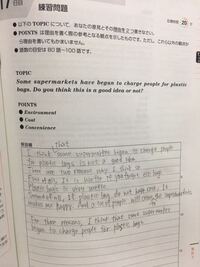 日目
練習問題
目標時間 20 分
● 以下の TOPIC について、あなたの意見とその理由を 2 つ書きなさい。
● POINTS は理由を書く際の参考となる観点を示したものです。ただし、これら以外の観点から理由を書いてもかまいません。
● 語数の目安は 80 語～100 語です。
TOPIC
Some supermarkets have began to charge people for plastic
bags. Do you think this is a good idea or not?
POINTS
● Environment
● Cost
● Convenience
解答欄
that
I think some supermarkets began to charge people
for plastic bags is not a good idea.
There are two reasons why I think so.
First of all, It is
plastic bags is very
Second of all, If plastic bags do not
makes me happy. And a lot of people will come the supermarkets
For these reasons, I think that some supermarkets
began to charge people for plastic bags